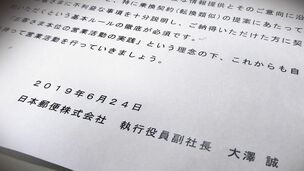 情報提供とそのご意向に
、特に乗換契約(転換類似)の提案にあたって
に不利益な事項を十分説明し、ご納得いただけた方に契
いただくという基本ルールの徹底が必須です。
お客さま本位の営業活動の実践」という理念の下、これからも自
持って営業活動を行っていきましょう。
2019年6月24日
日本郵便株式会社 執行役員副社長 大澤 誠